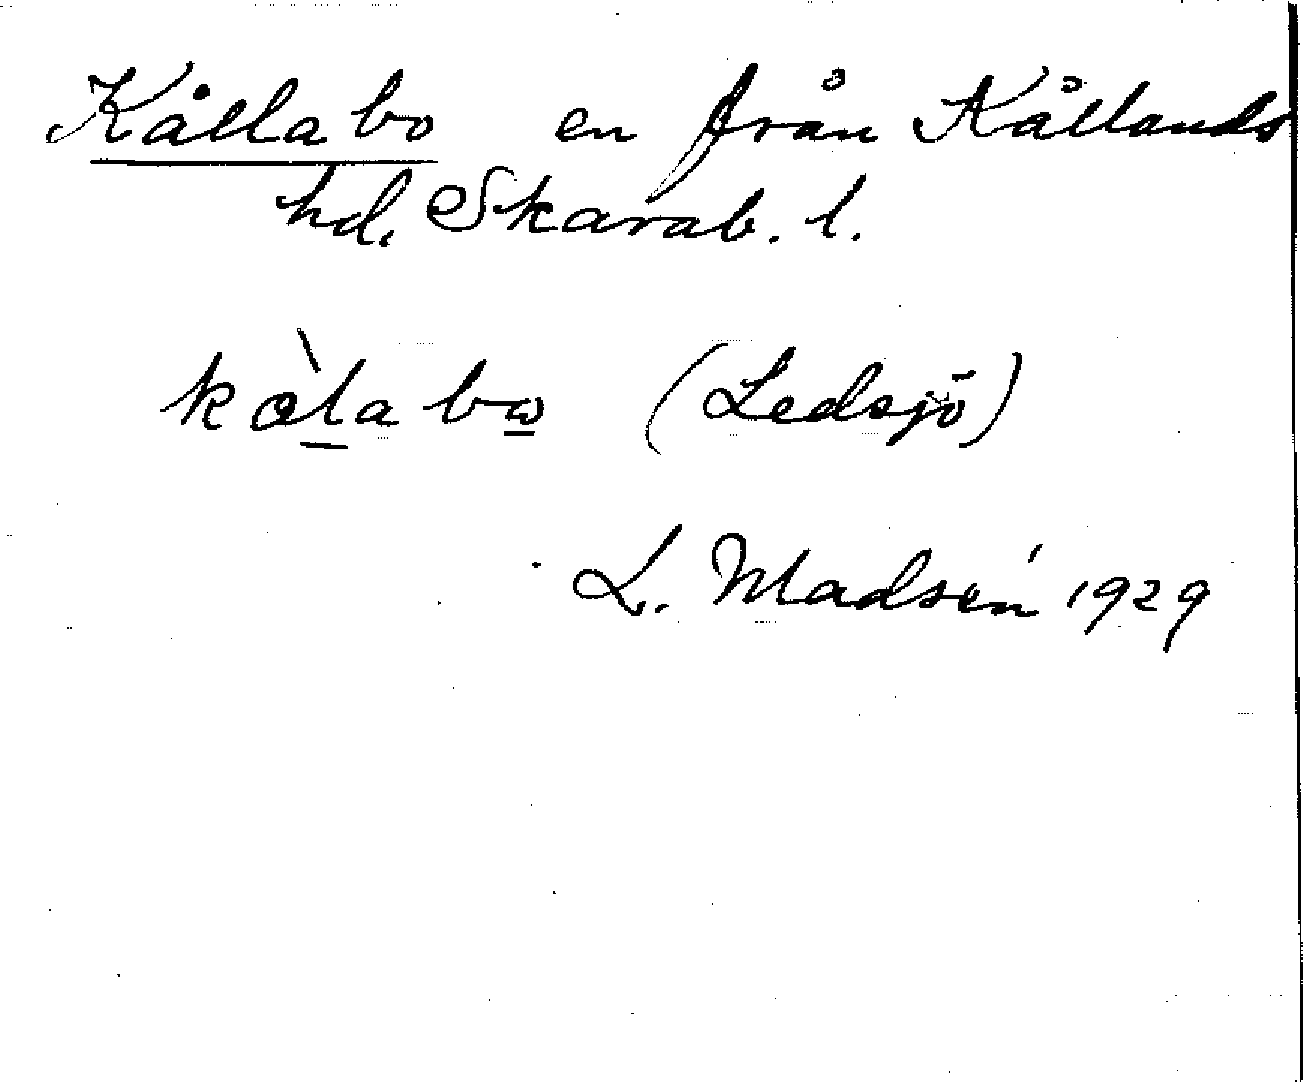 Kållabo en från Kållands
hd. Skarab. l.
kòlabω (Ledsjö)
L. Madsén 1929